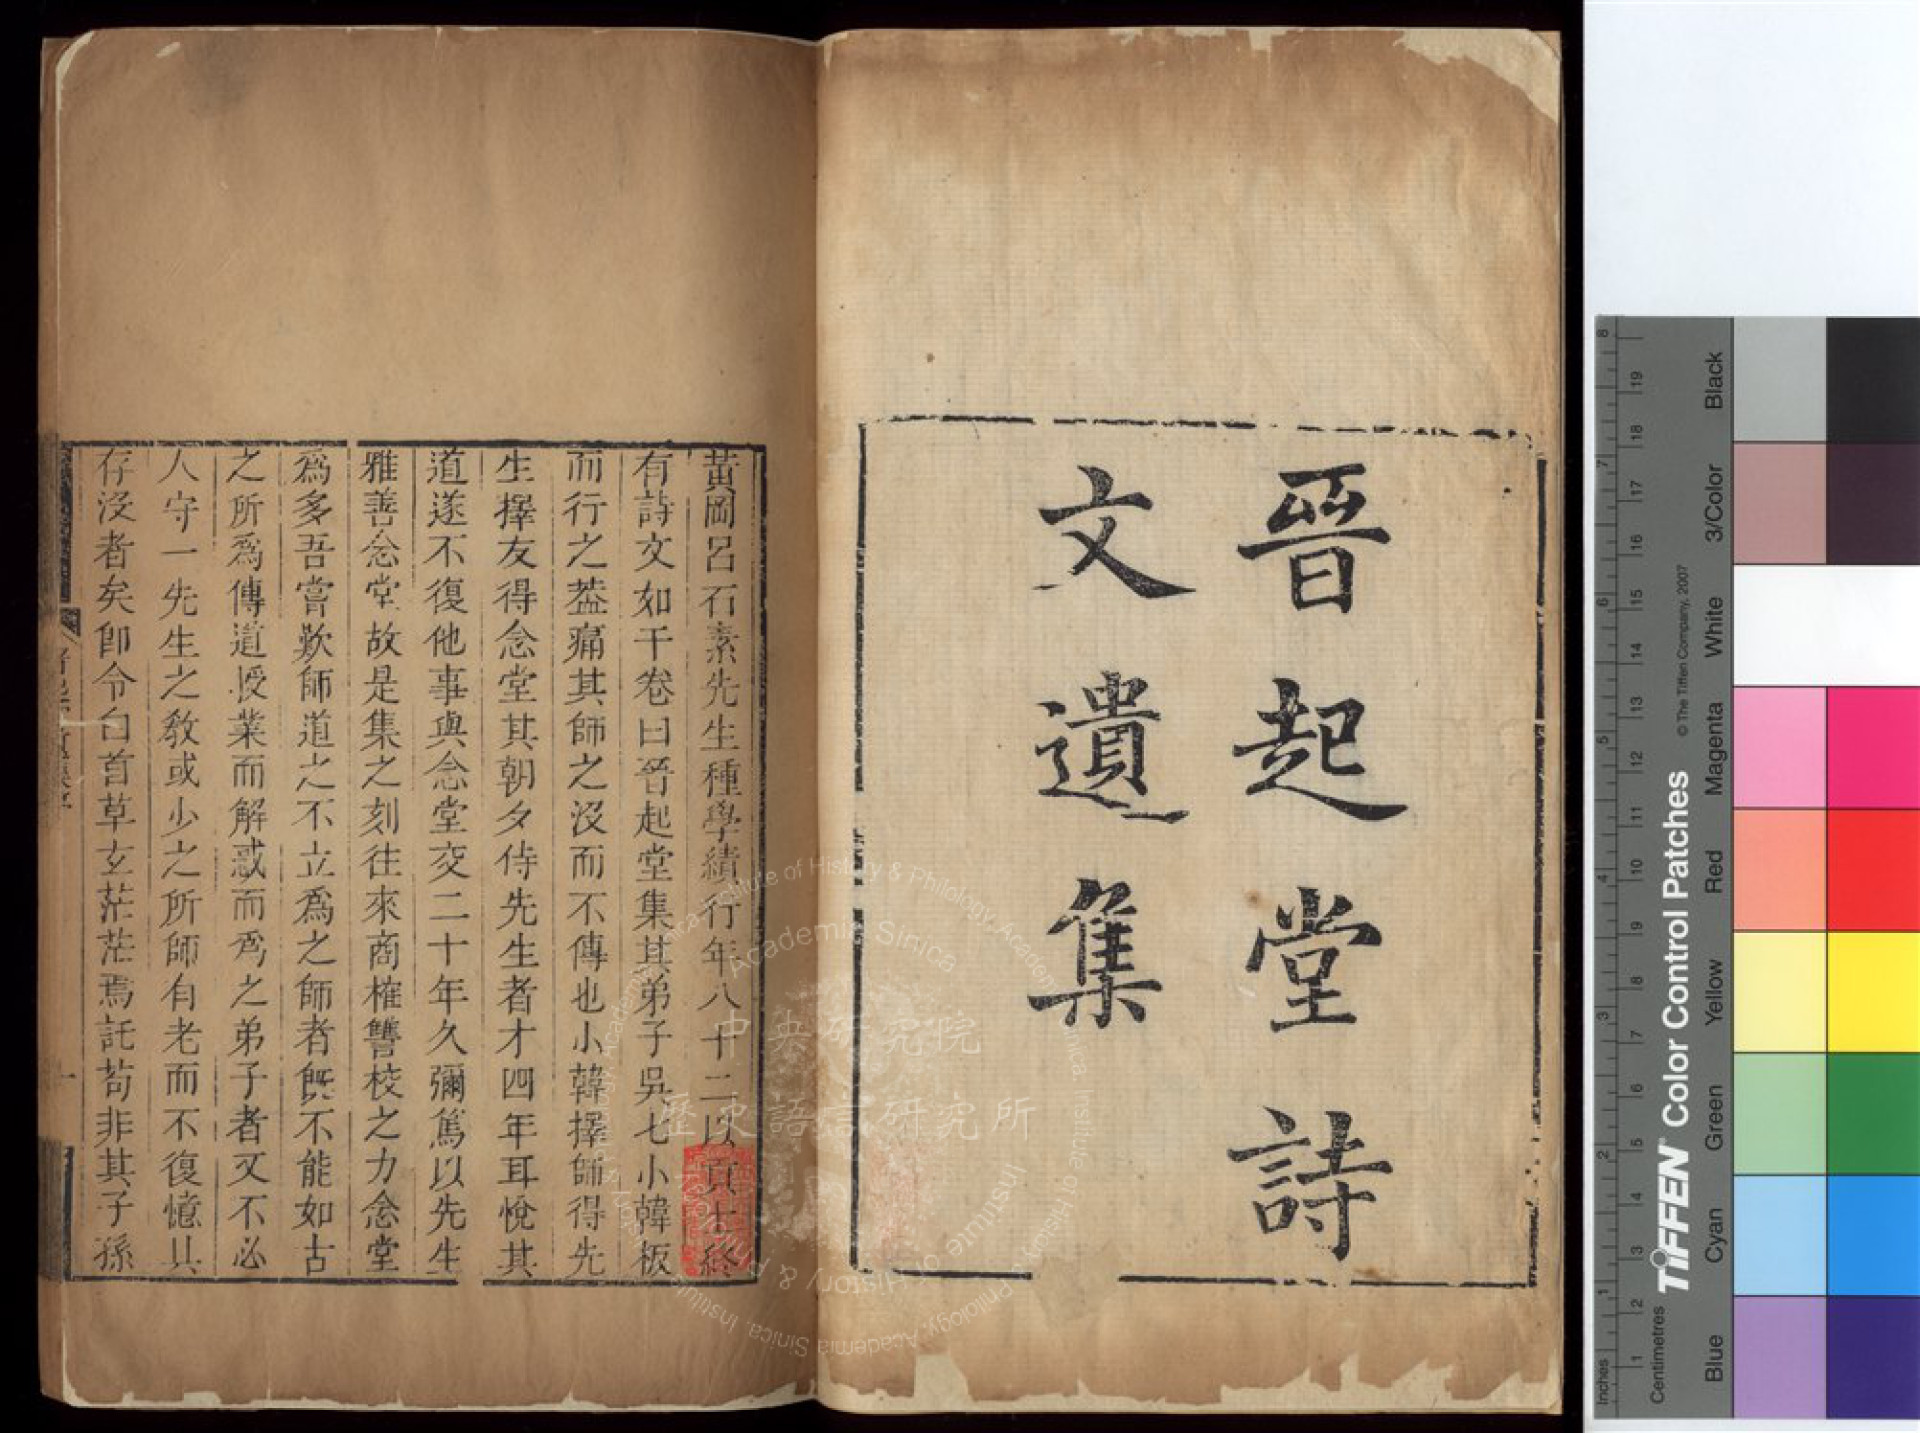 晉起堂詩
文遺集
黃岡呂石素先生種學績行年八十二以貢士終
有詩文如干卷曰晉起堂集其弟子吳七小韓板
而行之葢痛其師之沒而不傳也小韓擇師得先
生擇友得念堂其朝夕侍先生者才四年耳悅其
道遂不復他事與念堂交二十年久彌篤以先生
雅善念堂故是集之刻往來商榷讐校之力念堂
爲多吾嘗歎師道之不立爲之師者旣不能如古
之所爲傳道授業而解惑而爲之弟子者又不必
人守一先生之敎或少之所師有老而不復憶其
存沒者矣卽令白首草玄茫茫焉託苟非其子孫
一
中央研究院
歷史語言研究所
Academia Sinica
Institute of History & Philology, Academia Sinica
TIFFEN Color Control Patches
© The Tiffen Company, 2007
Inches
1 2 3 4 5 6 7 8
Centimetres
1 2 3 4 5 6 7 8 9 10 11 12 13 14 15 16 17 18 19
Blue
Cyan
Green
Yellow
Red
Magenta
White
3/Color
Black